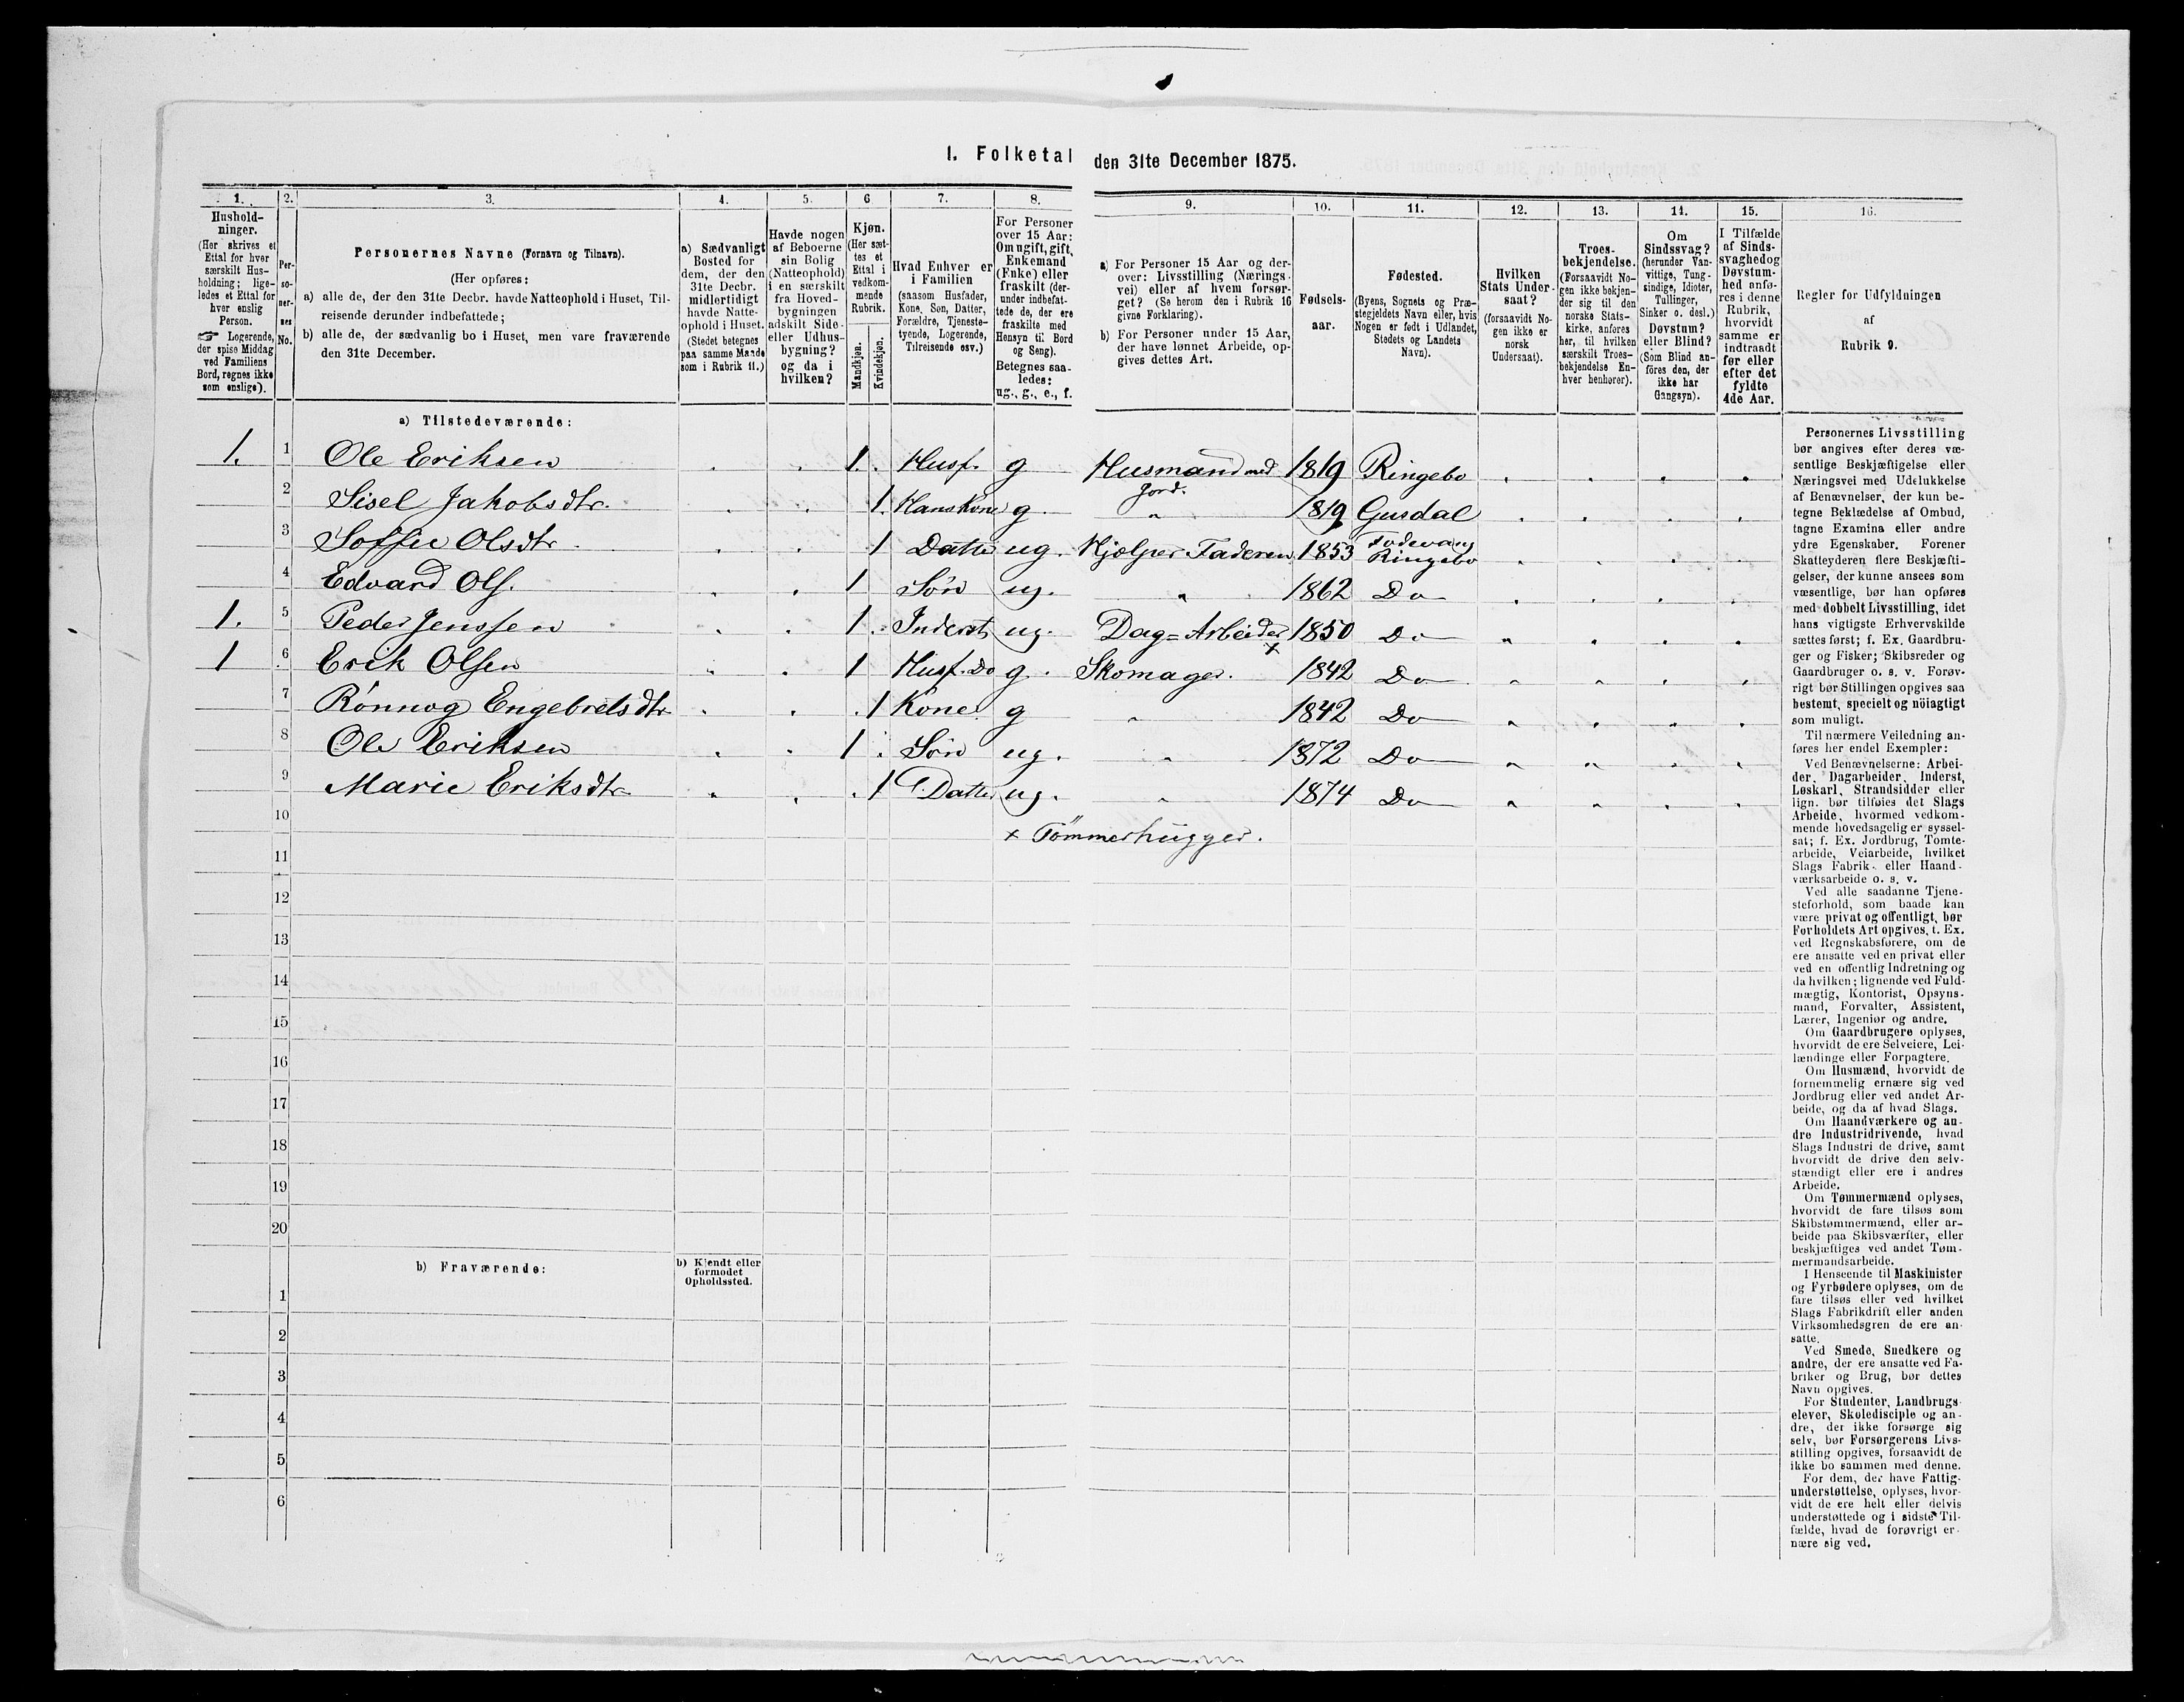 I. Folketal den 31te December 1875.
1.
Hushold-
ninger.
(Her skrives et
Ettal for hver
særskilt Hus-
holdning; lige-
ledes et Ettal for
hver enslig
Person.
☞ Logerende,
der spise Middag
ved Familiens
Bord, regnes ikke
som enslige).
2.
Per-
so-
ner-
nes
No.
3.
Personernes Navne (Fornavn og Tilnavn).
(Her opføres:
a) alle de, der den 31te Decbr. havde Natteophold i Huset, Til-
reisende derunder indbefattede;
b) alle de, der sædvanlig bo i Huset, men vare fraværende
den 31te December.
4.
a) Sædvanligt
Bosted for
dem, der den
31te Decbr.
midlertidigt
havde Natte-
ophold i Huset.
(Stedet betegnes
paa samme Maade
som i Rubrik 11.)
5.
Havde nogen
af Beboerne
sin Bolig
(Natteophold)
i en særskilt
fra Hoved-
bygningen
adskilt Side-
eller Udhus-
bygning?
og da i
hvilken?
6
Kjøn.
(Her sæt-
tes et
Ettal i
vedkom-
mende
Rubrik.
Mandkjøn.
Kvindekjøn.
7.
Hvad Enhver er
i Familien
(saasom Husfader,
Kone, Søn, Datter,
Forældre, Tjeneste-
tyende, Logerende,
Tilreisende osv.)
8.
For Personer
over 15 Aar:
Om ugift, gift,
Enkemand
(Enke) eller
fraskilt (der-
under indbefat-
tede de, der ere
fraskilte med
Hensyn til Bord
og Seng).
Betegnes saa-
ledes:
ug., g., e., f.
9.
a) For Personer 15 Aar og der-
over: Livsstilling (Nærings-
vei) eller af hvem forsør-
get? (Se herom den i Rubrik 16
givne Forklaring).
b) For Personer under 15 Aar,
der have lønnet Arbeide, op-
gives dettes Art.
10.
Fødsels-
aar.
11.
Fødested.
(Byens, Sognets og Præ-
stegjeldets Navn eller, hvis
Nogen er født i Udlandet,
Stedets og Landets
Navn).
12.
Hvilken
Stats Under-
saat?
(forsaavidt No-
gen ikke er
norsk
Undersaat).
13.
Troes-
bekjendelse.
(Forsaavidt No-
gen ikke bekjen-
der sig til den
norske Stats-
kirke, anføres
her, til hvilken
særskilt Troes-
bekjendelse En-
hver henhører).
14.
Om
Sindssvag?
(herunder Van-
vittige, Tung-
sindige, Idioter,
Tullinger,
Sinker o. desl.)
Døvstum?
eller Blind?
(Som Blind an-
föres den, der
ikke har
Gangsyn).
15.
I Tilfælde
af Sinds-
svaghed og
Døvstum-
hed anfø-
res i denne
Rubrik,
hvorvidt
samme er
indtraadt
før eller
efter det
fyldte
4de Aar.
16.
Regler for Udfyldningen
af
Rubrik 9.
a) Tilstedeværende:
1. 1 Ole Eriksen 1. Husf. g Husmand med Jord. 1819 Ringebo
2 Sisel Jakobsdtr. 1. Hans Kone g " 1819 Gusdal
3 Soffie Olsdtr 1 Datter ug. Hjælper Faderen 1853 Fodevang Ringebo
4 Edvard Ols. 1 Søn ug. " 1862 Do
1. 5 Peder Jenssen 1. Inderst ug. Dag=Arbeider x 1850 Do
1 6 Erik Olsen 1 Husf. Do g. Skomager. 1842 Do
7 Rønnog Engebretsdtr 1 Kone g " 1842 Do
8 Ole Eriksen 1 Søn ug. " 1872 Do
9 Marie Eriksdtr 1 Datter ug. " 1874 Do
10 x Tömmerhugger.
11
12
13
14
15
16
17
18
19
20
b) Fraværende:
b) Kjendt eller
formodet
Opholdssted.
1
2
3
4
5
6
Personernes Livsstilling
bør angives efter deres væ-
sentlige Beskjæftigelse eller
Næringsvei med Udelukkelse
af Benævnelser, der kun be-
tegne Beklædelse af Ombud,
tagne Examina eller andre
ydre Egenskaber. Forener
Skatteyderen flere Beskjæfti-
gelser, der kunne ansees som
væsentlige, bør han opføres
med dobbelt Livsstilling, idet
hans vigtigste Erhvervskilde
sættes først; f. Ex. Gaardbru-
ger og Fisker; Skibsreder og
Gaardbruger o. s. v. Forøv-
rigt bør Stillingen opgives saa
bestemt, specielt og nöiagtigt
som muligt.
Til nærmere Veiledning an-
føres her endel Exempler:
Ved Benævnelserne: Arbei-
der, Dagarbeider, Inderst,
Løskarl, Strandsidder eller
lign. bør tilføies det Slags
Arbeide, hvormed vedkom-
mende hovedsagelig er syssel-
sat; f. Ex. Jordbrug, Tomte-
arbeide, Veiarbeide, hvilket
Slags Fabrik- eller Haand-
værksarbeide o. s. v.
Ved alle saadanne Tjene-
steforhold, som baade kan
være privat og offentligt, bør
Forholdets Art opgives, t. Ex.
ved Regnskabsførere, om de
ere ansatte ved en privat eller
ved en offentlig Indretning og
da hvilken; lignende ved Fuld-
mægtig, Kontorist, Opsyns-
mand, Forvalter, Assistent,
Lærer, Ingeniør og andre.
Om Gaardbrugere oplyses,
hvorvidt de ere Selveiere, Lei-
lændinge eller Forpagtere.
Om Husmænd, hvorvidt de
fornemmelig ernære sig ved
Jordbrug eller ved andet Ar-
beide, og da af hvad Slags.
Om Haandværkere og an-
dre Industridrivende, hvad
Slags Industri de drive, samt
hvorvidt de drive den selv-
stændigt eller ere i andres
Arbeide.
Om Tømmermænd oplyses,
hvorvidt de fare tilsøs som
Skibstømmermænd, eller ar-
beide paa Skibsværfter, eller
beskjæftiges ved andet Tøm-
mermandsarbeide.
I Henseende til Maskinister
og Fyrbødere oplyses, om de
fare tilsøs eller ved hvilket
Slags Fabrikdrift eller anden
Virksomhedsgren de ere an-
satte.
Ved Smede, Snedkere og
andre, der ere ansatte ved Fa-
briker og Brug, bør dettes
Navn opgives.
For Studenter, Landbrugs-
elever, Skoledisciple og an-
dre, der ikke forsørge sig
selv, bør Forsørgerens Livs-
stilling opgives, forsaavidt de
ikke bo sammen med denne.
For dem, der have Fattig-
understøttelse, oplyses, hvor-
vidt de ere helt eller delvis
understøttede og i sidste Til-
fælde, hvad de forøvrigt er-
nære sig ved.